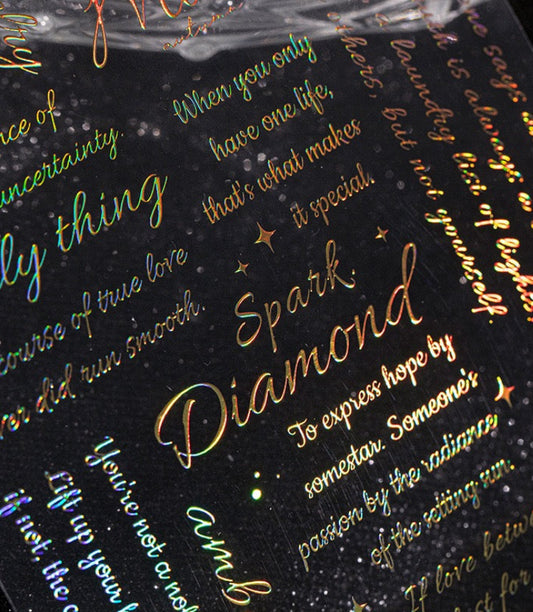 nce of
uncertainty.
ly thing
course of true love
ver did run smooth.
When you only
have one life,
that's what makes
it special.
Spark
Diamond
To express hope by
somestar. Someone's
passion by the radiance
of the setting sun.
ne says
is always a
laundry list of lights
others, but not yourself.
You're not a no
Lift up your
if not, the
amb
If love betwe
t for